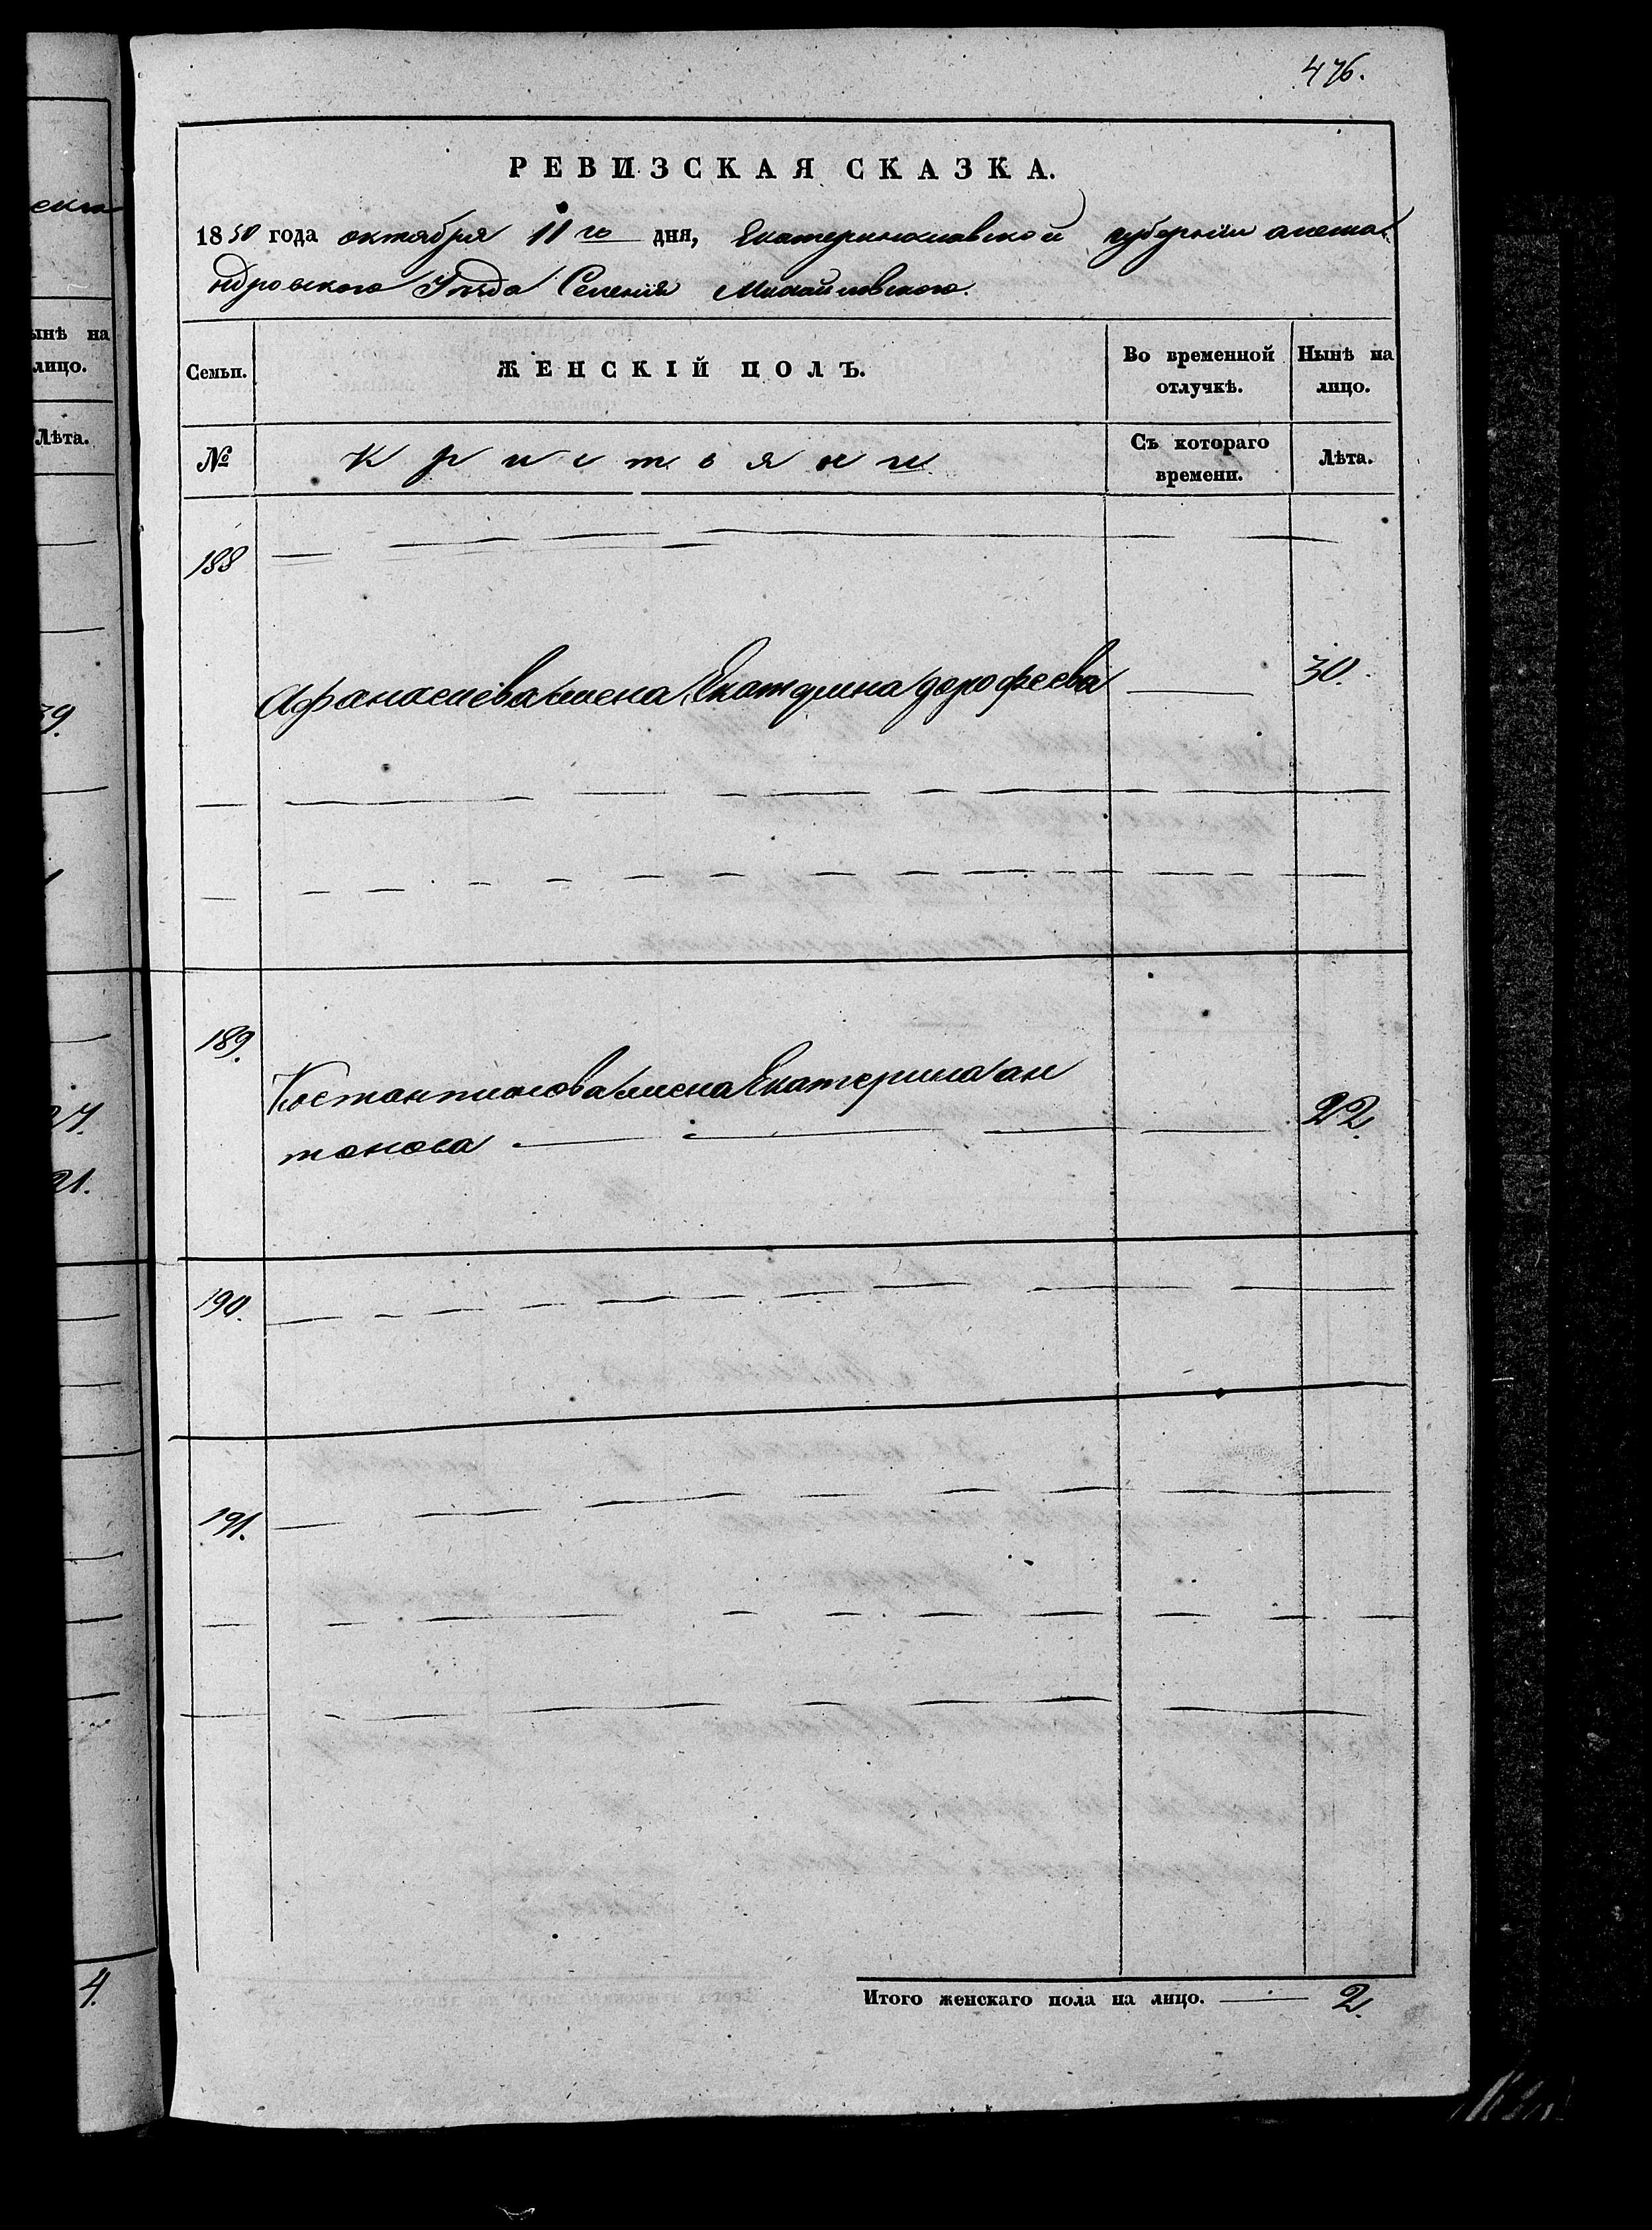 476.
РЕВИЗСКАЯ СКАЗКА.
1850 года октября 11го дня, Екатеринославской губернии алекса
ндровского Уезда Селения Михайловского.
Семьи.
ЖЕНСКІЙ ПОЛЪ.
Во временной
отлучкѣ.
Нынѣ на
лицо.
№
Кристьяни
Съ котораго
времени.
Лѣта.
188
Афанасиева жена Екатерина дорофеева 30.
189.
Костантинова жена Екатерина ан
тонова 22.
190.
191.
Итого женскаго пола на лицо. 2.
ынѣ на
лицо.
Лѣта.
39.
27.
21.
4.